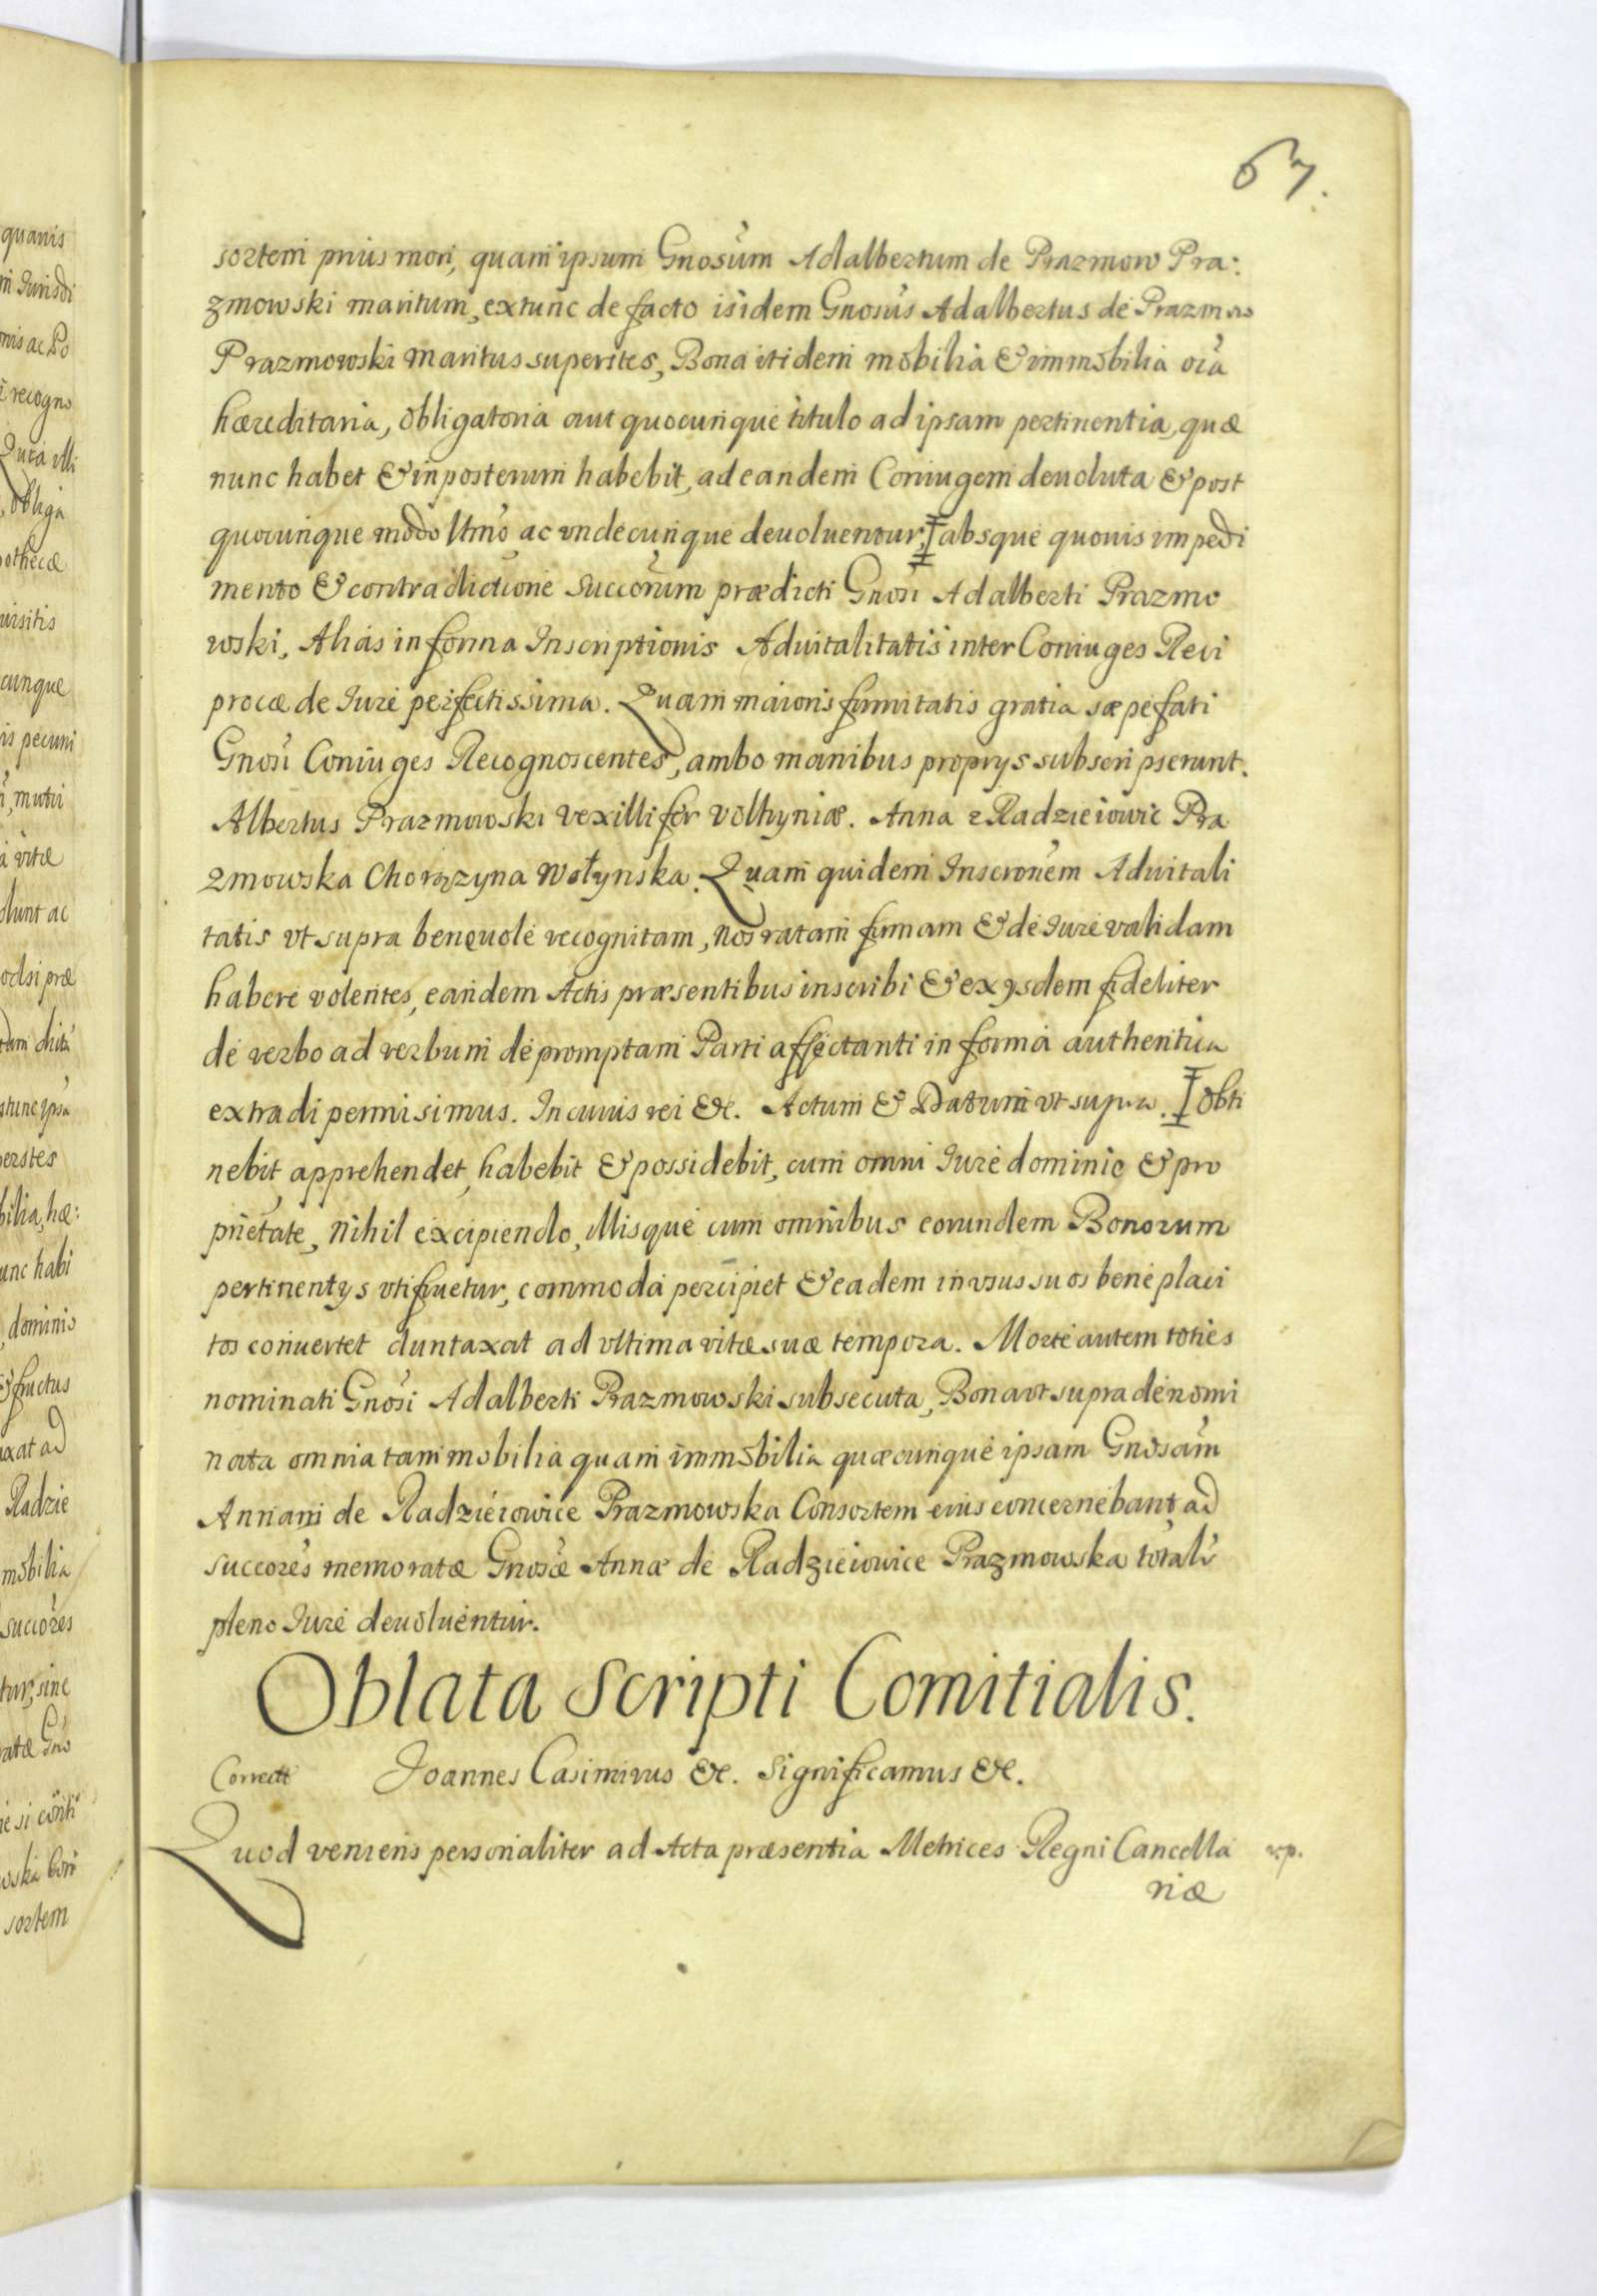 67.
sortem prius mori, quam ipsum Gnosum Adalbertum de Prazmow Pra:
zmowski maritum, extunc de facto isidem Gnosus Adalbertus de Prazmow
Prazmowski maritus superstes, Bona itidem mobilia & immobilia oia
hæreditaria, obligatoria aut quocunque titulo ad ipsam pertinentia, quæ
nunc habet & in posterum habebit, ad eandem Coniugem deuoluta & post
quocunque modo ltmo ac vndecunque deuoluentur, absque quouis impedi
mento & contradictione succorum prædicti Gnosi Adalberti Prazmo
wski, Alias in forma Inscriptionis Aduitalitatis inter Coniuges Reci
procæ de Iure perfectissima. Quam maioris firmitatis gratia sæpefati
Gnosi Coniuges Recognoscentes, ambo manibus proprys subscripserunt.
Albertus Prazmowski vexillifer volhyniæ. Anna z Radzieiowic Pra
zmowska Chorązyna Wołynska. Quam quidem Inscronem Aduitali
tatis vt supra beneuole recognitam, nos ratam firmam & de Iure validam
habere volentes, eandem Actis præsentibus inscribi & ex ysdem fideliter
de verbo ad verbum depromptam Parti affectanti in forma authentica
extradi permisimus. In cuius rei &c. Actum & Datum vt supra. obti
nebit, apprehendet, habebit & possidebit, cum omni Iure dominio & pro
prietate, nihil excipiendo, illisque cum omnibus eorundem Bonorum
pertinentys vtifruetur, commoda percipiet & eadem in vsus suos beneplaci
tos conuertet duntaxat ad vltima vitæ suæ tempora. Morte autem toties
nominati Gnosi Adalberti Prazmowski subsecuta, Bona vt supra denomi
nata omnia tam mobilia quam immobilia quæcunque ipsam Gnosam
Annam de Radzieiowice Prazmowska Consortem eius concernebant, ad
succores memoratæ Gnosæ Annæ de Radzieiowice Prazmowska totalr
pleno Iure deuoluentur.
Oblata Scripti Comitialis.
Correct Joannes Casimirus &c. Significamus &c.
Quod veniens personaliter ad Acta præsentia Metrices Regni Cancella
riæ